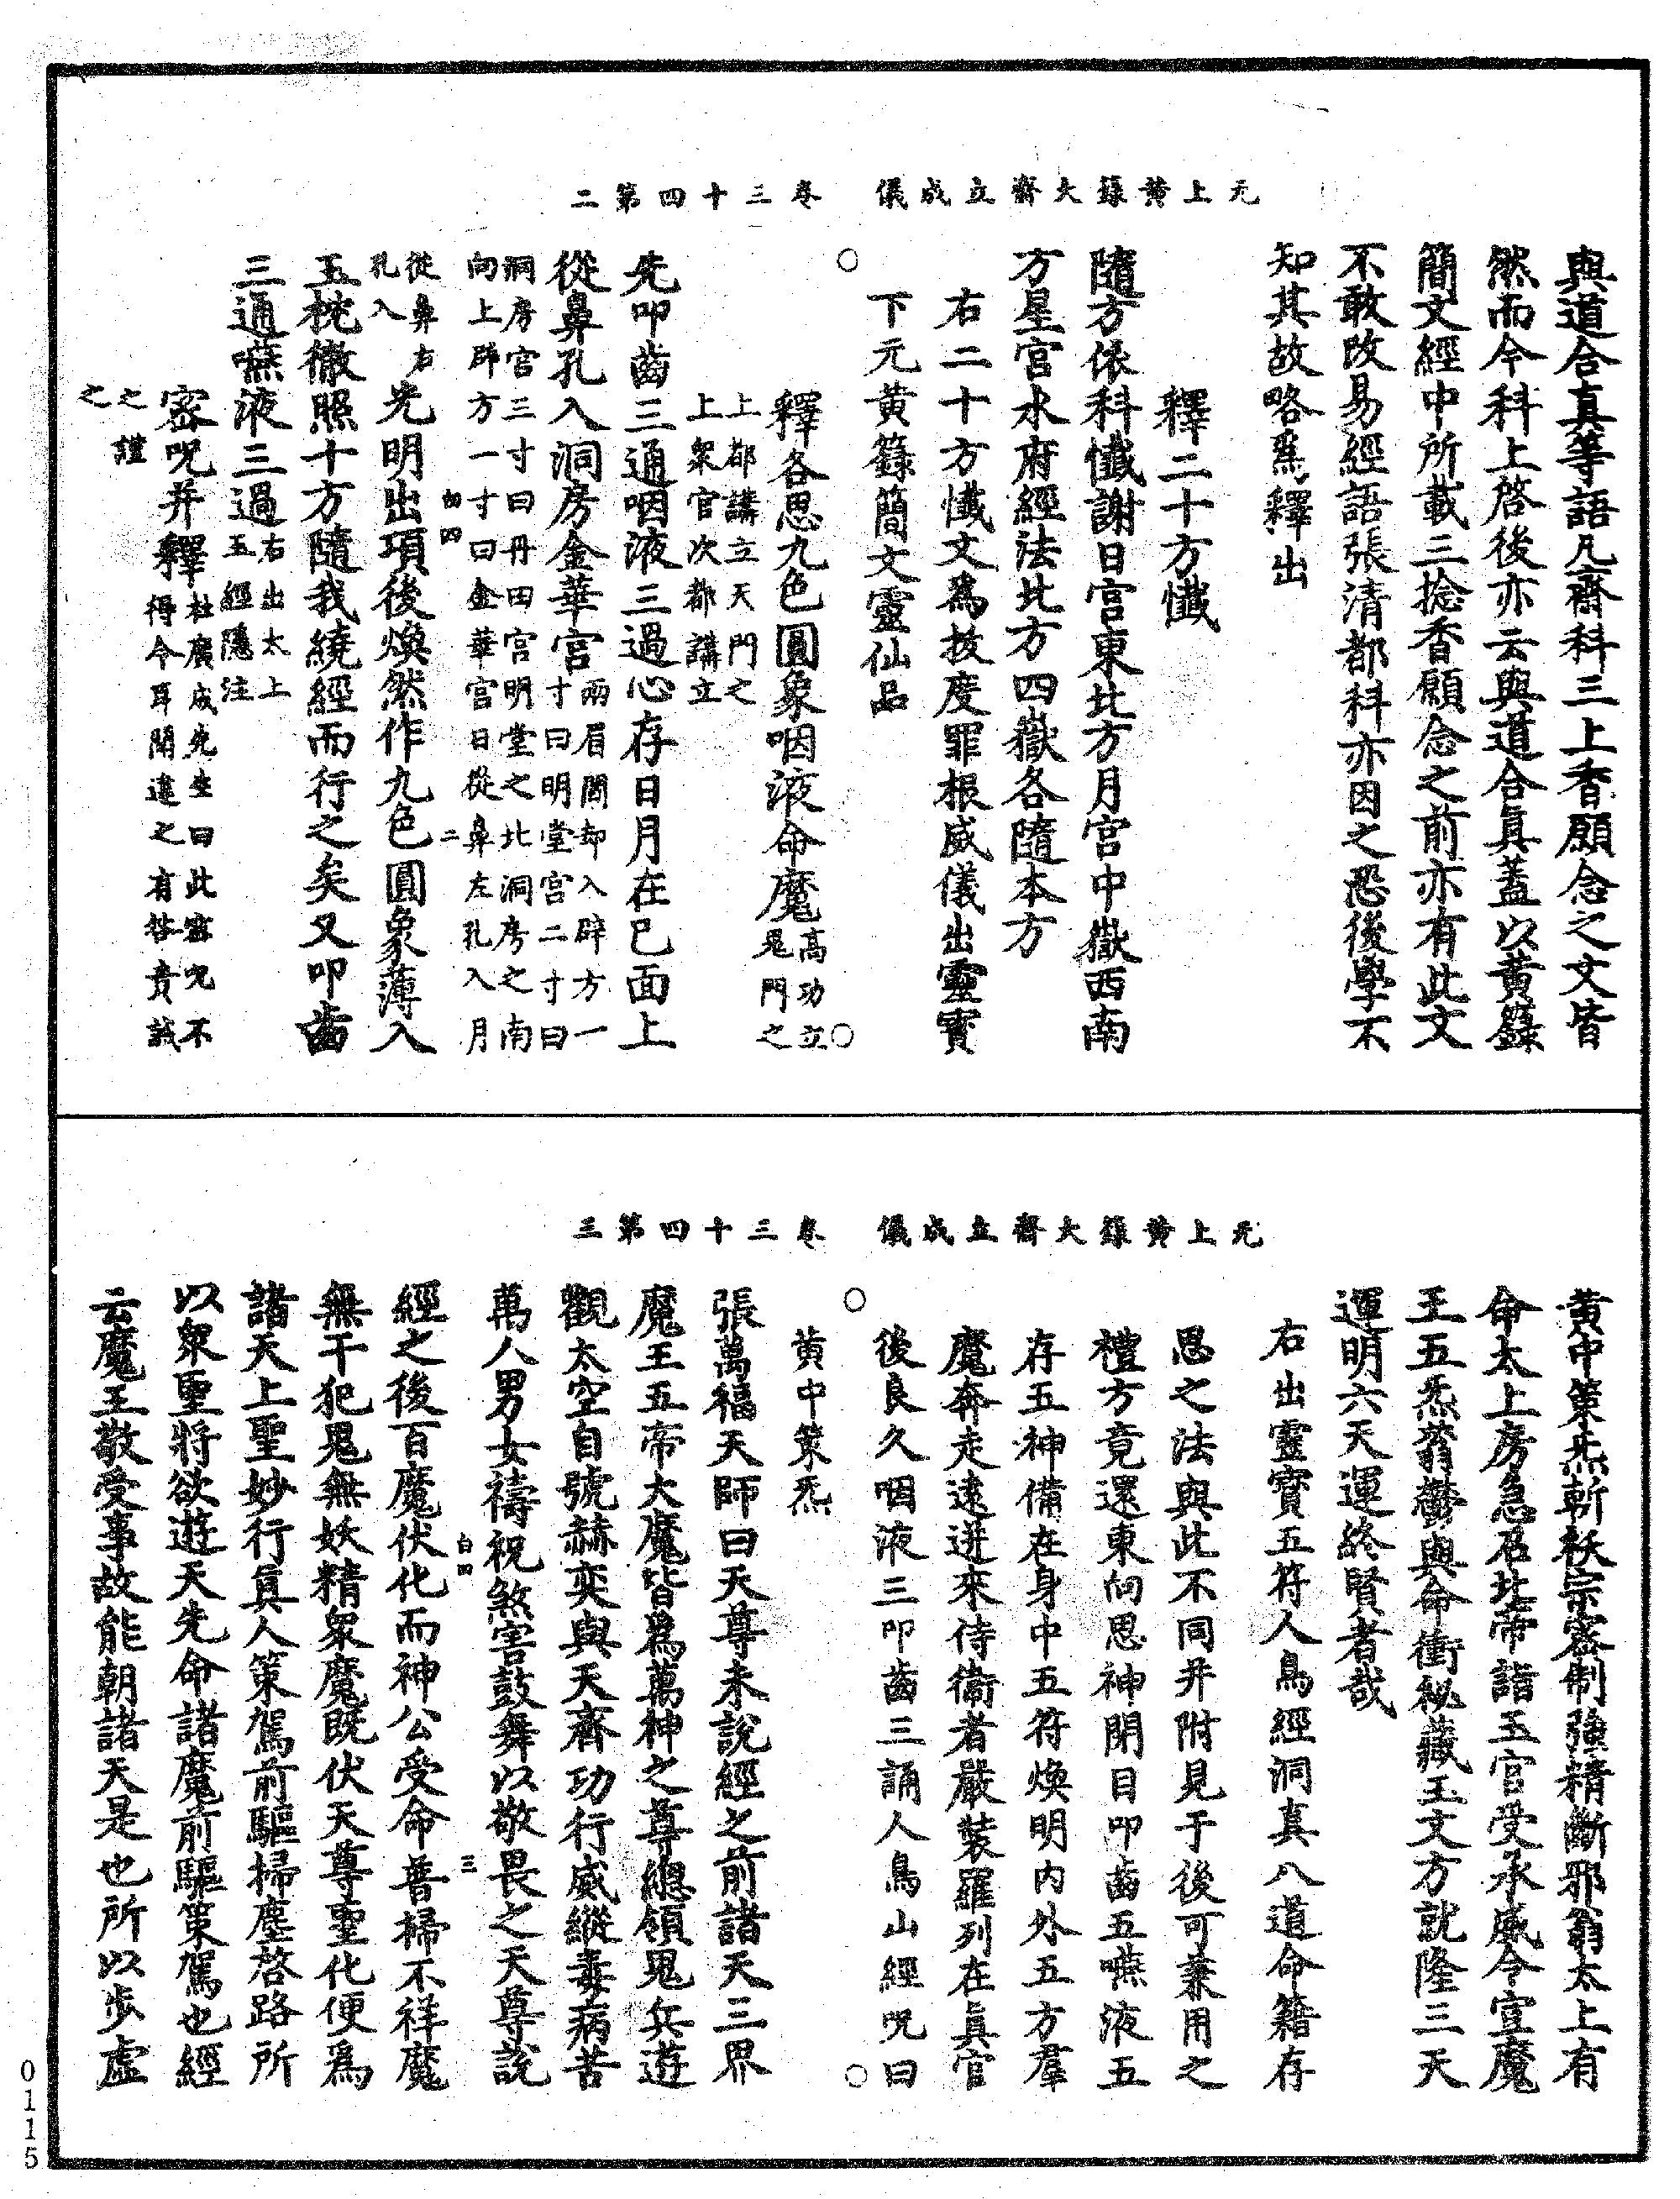 无上黃籙大齋立成儀　卷三十四第二
與道合真等語凡齋科三上香願念之文皆
然而今科上啓後亦云與道合眞蓋以黃籙
簡文經中所載三捻香願念之前亦有此文
不敢改易經語張清都科亦因之恐後學不
知其故略爲釋出
釋二十方懺
隨方依科懺謝日宮東北方月宮中嶽西南
方星宮水府經法北方四嶽各隨本方
右二十方懺文爲拔度罪根威儀出靈寶
下元黃籙簡文靈仙品
釋各思九色圓象咽液命魔高功立
鬼門之
上都講立天門之
上衆官次都講立
先叩齒三通咽液三過心存日月在己面上
從鼻孔入洞房金華宮兩眉間却入辟方一
寸曰明堂宮二寸曰
洞房宮三寸曰丹田宮明堂之北洞房之南
向上辟方一寸曰金華宮日從鼻左孔入月
從鼻右
孔入
光明出項後煥然作九色圓象薄入
玉枕徹照十方隨我繞經而行之矣又叩齒
三通嚥液三過右出太上
玉經隱注
密呪并釋杜廣成先生曰此密呪不
得令耳聞違之有咎責誡
之謹
之
无上黃籙大齋立成儀　卷三十四第三
黃中策炁斬祅宗密制強精斷邪翁太上有
命太上房急召北帝詣玉官受承威令宣魔
王五炁蓊鬱與命衝祕藏玉文方就隆三天
運明六天運終賢者哉
右出靈寶五符人鳥經洞真八道命籍存
思之法與此不同并附見于後可兼用之
禮方竟還東向思神閉目叩齒五嚥液五
存五神備在身中五符煥明内外五方羣
魔奔走遠迸來侍衛者嚴裝羅列在眞官
後良久咽液三叩齒三誦人鳥山經呪曰
黃中策炁
張萬福天師曰天尊未說經之前諸天三界
魔王五帝大魔皆爲萬神之尊總領鬼兵遊
觀太空自號赫奕與天齊功行威縱毒病苦
萬人男女禱祝煞害鼓舞以敬畏之天尊說
經之後百魔伏化而神公受命普掃不祥魔
無干犯鬼無妖精衆魔既伏天尊聖化便爲
諸天上聖妙行眞人策駕前驅掃塵啓路所
以衆聖將欲遊天先命諸魔前驅策駕也經
云魔王敬受事故能朝諸天是也所以步虛
0115